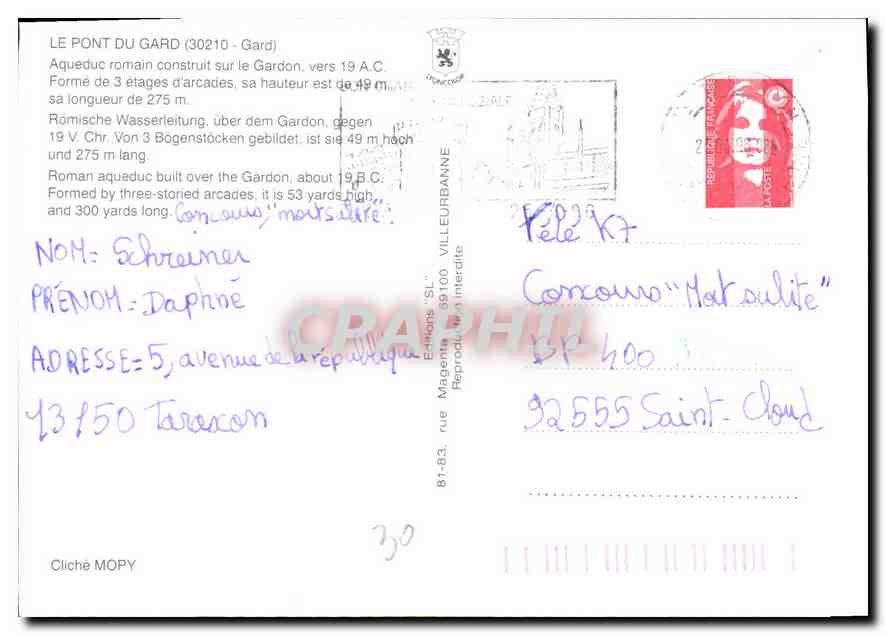 LE PONT DU GARD (30210 - Gard)
Aqueduc romain construit sur le Gardon, vers 19 A.C.
Formé de 3 étages d'arcades, sa hauteur est de 49 m.
sa longueur de 275 m.
Römische Wasserleitung, über dem Gardon, gegen
19 V. Chr. Von 3 Bögenstöcken gebildet, ist sie 49 m hoch
und 275 m lang.
Roman aqueduc built over the Gardon, about 19 B.C.
Formed by three-storied arcades, it is 53 yards high
and 300 yards long.
Concours "mortsulite".
NOM= Schreiner
PRÉNOM= Daphné
ADRESSE= 5, avenue de la république
13150 Tarascon
LYONCOLOR
Editions "SL"
81-83, rue Magenta 69100 VILLEURBANNE
Reproduction interdite
RÉPUBLIQUE FRANÇAISE
LA POSTE
Télé K7
Concours "Mot sulite"
BP 400
92555 Saint-Cloud
CPAPHIL
30
Cliché MOPY